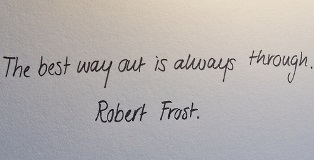 The best way out is always through.
Robert Frost.